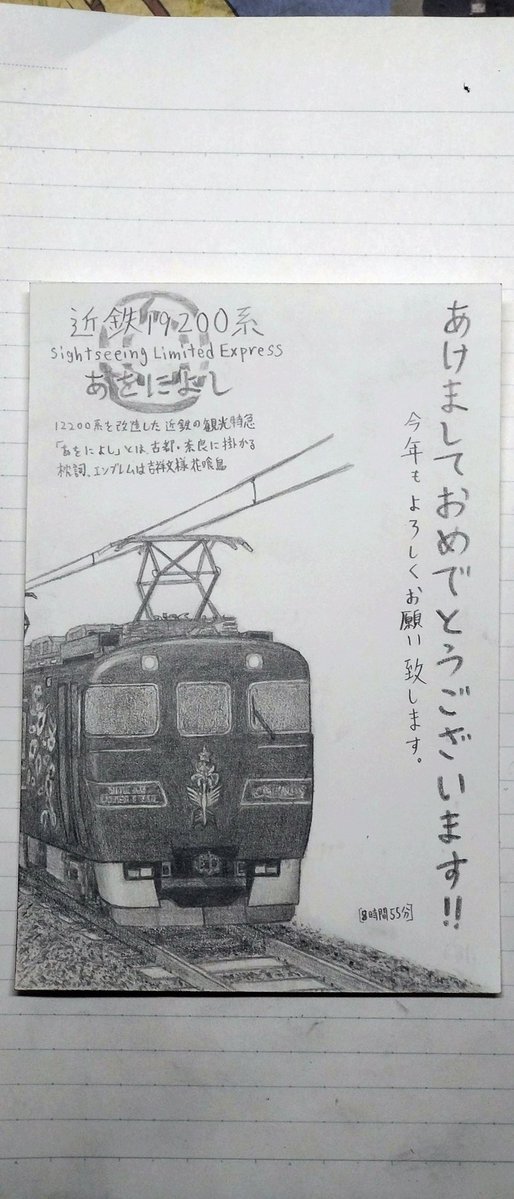 近鉄19200系
Sightseeing Limited Express
あをによし
12200系を改造した近鉄の観光特急
「あをによし」とは、古都・奈良に掛かる
枕詞、エンブレムは吉祥文様花喰鳥
あけましておめでとうございます!!
今年もよろしくお願い致します。
[8時間55分]